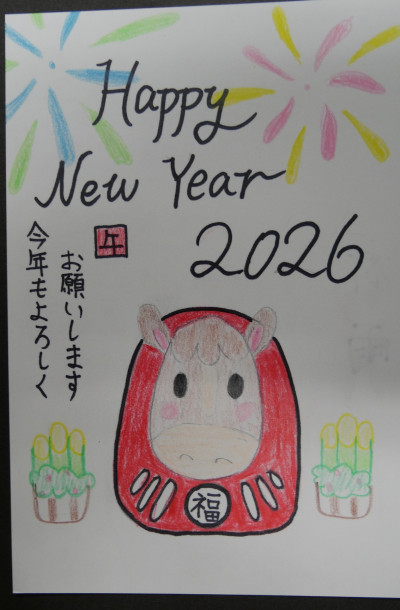 Happy
New Year
2026
午
今年もよろしく
お願いします
福